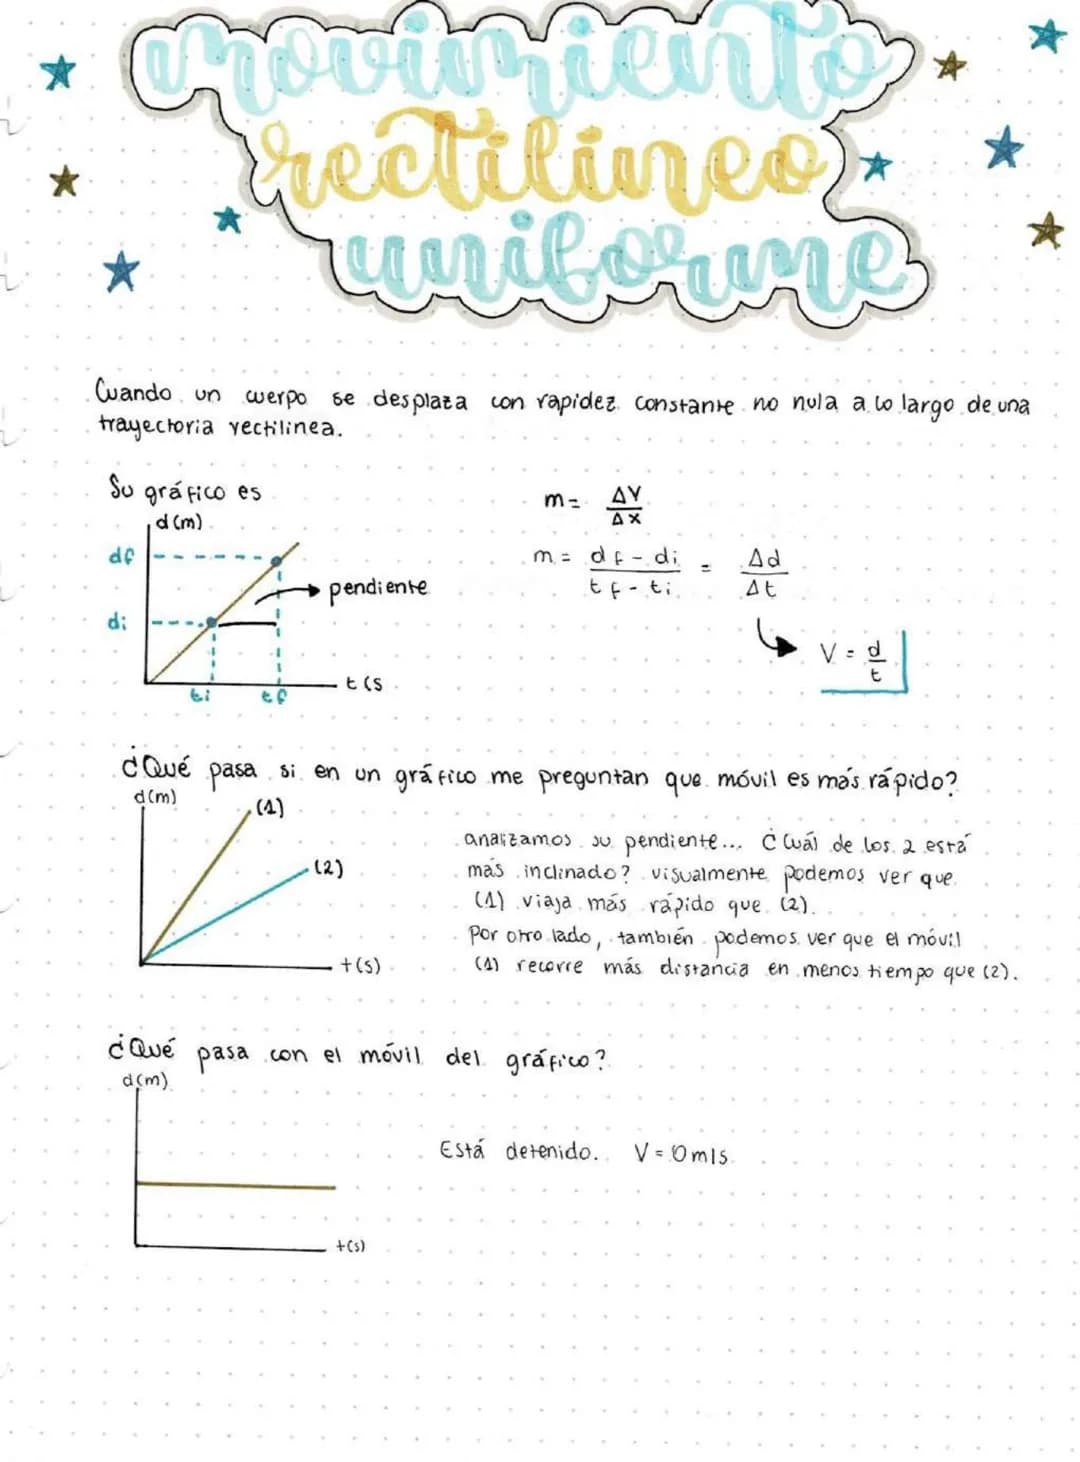 movimiento
rectilíneo
uniforme
Cuando un cuerpo se desplaza con rapidez constante no nula a lo largo de una
trayectoria rectilinea.
Su gráfico es
d (m)
df
di
ti
tf
t (s
pendiente
m = ΔY / ΔX
m = df - di / tf - ti = Δd / Δt
V = d / t
¿Qué pasa si en un gráfico me preguntan que móvil es más rápido?
d(m)
(1)
(2)
t(s)
analizamos su pendiente... ¿Cuál de los 2 está
más inclinado? visualmente podemos ver que
(1) viaja más rápido que (2).
Por otro lado, también podemos ver que el móvil
(1) recorre más distancia en menos tiempo que (2).
¿Qué pasa con el móvil del gráfico?
d(m)
t(s)
Está detenido. V = 0 m/s